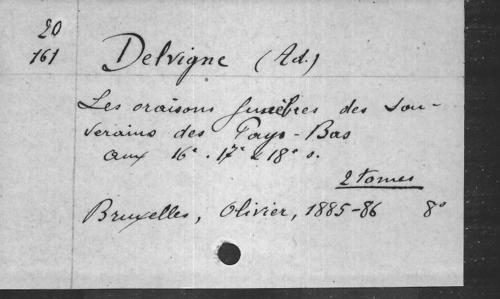 20
161
Delvigne (Ad.)
Les oraisons funèbres des sou-
verains des Pays-Bas
aux 16e. 17e & 18e s.
2 tomes
Bruxelles, Olivier, 1885-86 8°